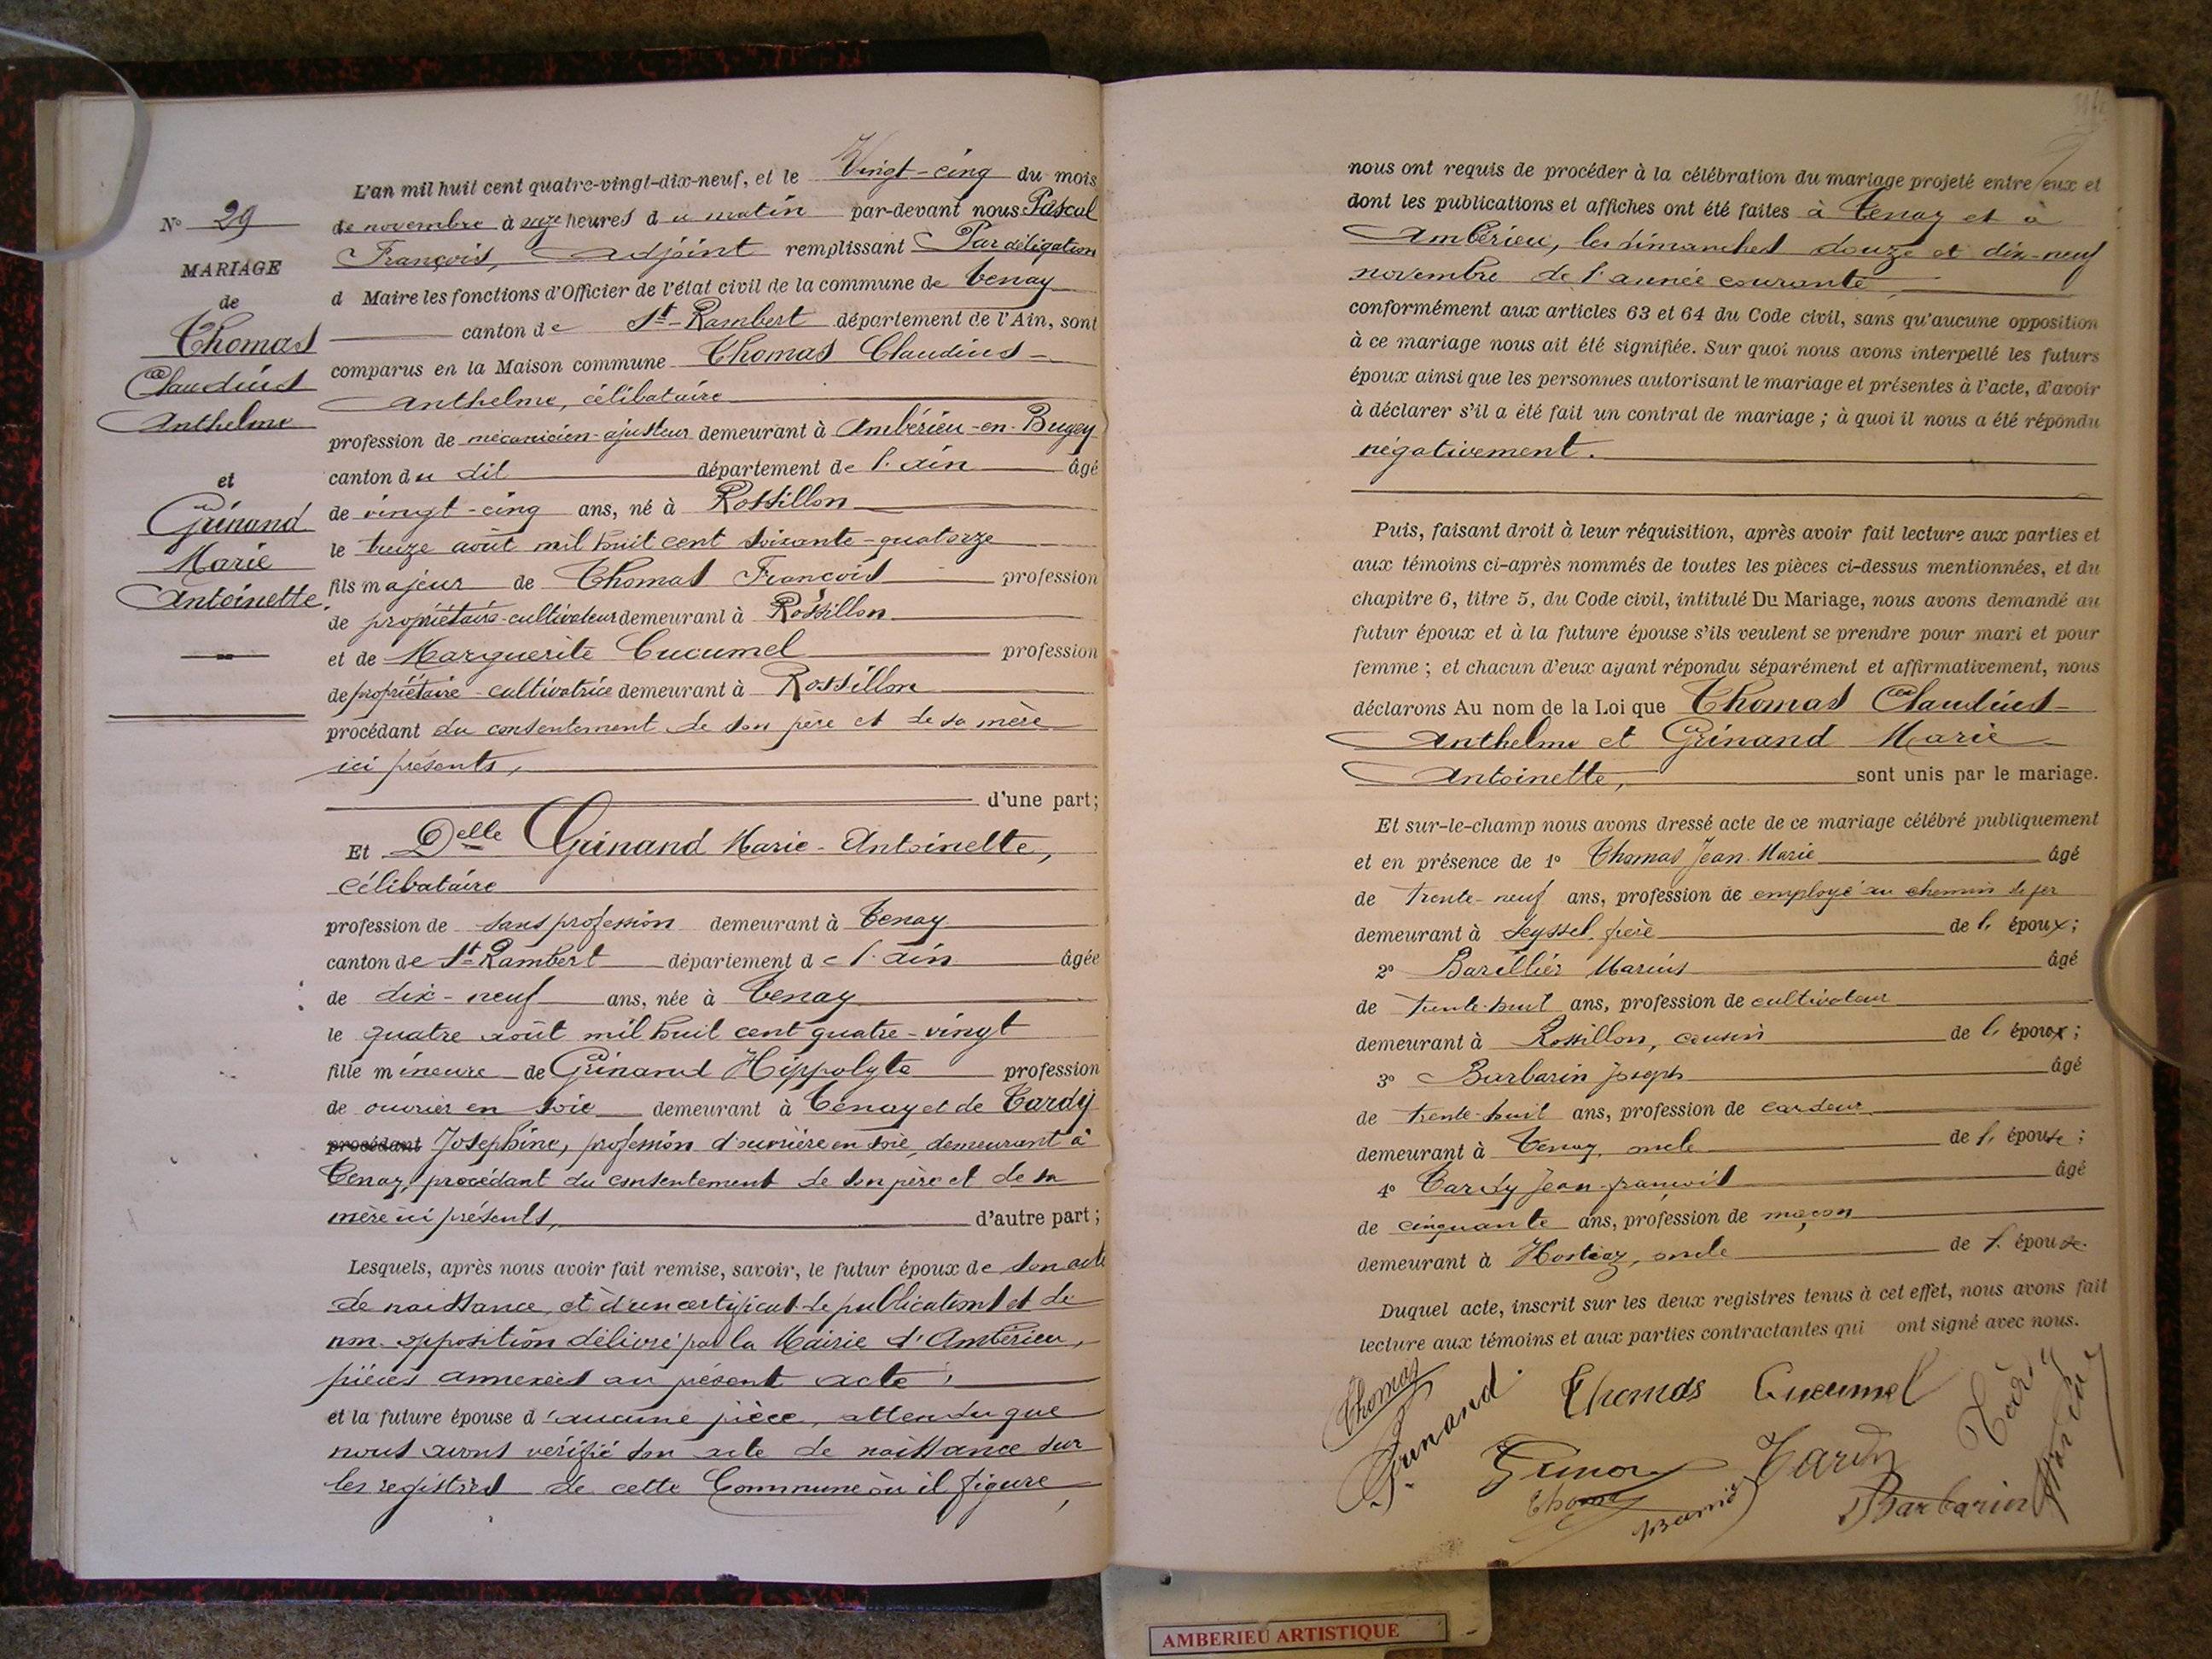 N° 29
MARIAGE
de
Thomas
Claudius
Anthelme
et
Grinand
Marie
Antoinette.
L'an mil huit cent quatre-vingt-dix-neuf, et le Vingt-cinq du mois
de novembre à onze heures du matin par-devant nous Pascal
François, Adjoint remplissant Par déligation
d Maire les fonctions d'Officier de l'état civil de la commune de Tenay
canton de St-Rambert département de l'Ain, sont
comparus en la Maison commune Thomas Claudius-
Anthelme, célibataire
profession de mécanicien-ajusteur demeurant à Ambérieu-en-Bugey
canton du dit département de l'Ain âgé
de vingt-cinq ans, né à Rossillon
le treize août mil huit cent soixante-quatorze
fils majeur de Thomas François profession
de propriétaire-cultivateur demeurant à Rossillon
et de Marguerite Cucumel profession
de propriétaire-cultivatrice demeurant à Rossillon
procédant du consentement de son père et de sa mère
ici présents,
d'une part;
Et Delle Grinand Marie-Antoinette,
célibataire
profession de sans profession demeurant à Tenay
canton de St-Rambert département de l'Ain âgée
de dix-neuf ans, née à Tenay
le quatre août mil huit cent quatre-vingt
fille mineure de Grinand Hippolyte profession
de ouvrier en soie demeurant à Tenay et de Tardy
procédant Josephine, profession d'ouvrière en soie, demeurant à
Tenay, procédant du consentement de son père et de sa
mère ici présents, d'autre part;
Lesquels, après nous avoir fait remise, savoir, le futur époux de son acte
de naissance, et d'un certificat de publications et de
non-opposition délivré par la Mairie d'Ambérieu,
pièces annexées au présent acte;
et la future épouse d'aucune pièce, attendu que
nous avons vérifié son acte de naissance sur
les registres de cette Commune où il figure,
nous ont requis de procéder à la célébration du mariage projeté entre eux et
dont les publications et affiches ont été faites à Tenay et à
Ambérieu, les dimanches douze et dix-neuf
novembre de l'année courante,
conformément aux articles 63 et 64 du Code civil, sans qu'aucune opposition
à ce mariage nous ait été signifiée. Sur quoi nous avons interpellé les futurs
époux ainsi que les personnes autorisant le mariage et présentes à l'acte, d'avoir
à déclarer s'il a été fait un contrat de mariage; à quoi il nous a été répondu
négativement.
Puis, faisant droit à leur réquisition, après avoir fait lecture aux parties et
aux témoins ci-après nommés de toutes les pièces ci-dessus mentionnées, et du
chapitre 6, titre 5, du Code civil, intitulé Du Mariage, nous avons demandé au
futur époux et à la future épouse s'ils veulent se prendre pour mari et pour
femme; et chacun d'eux ayant répondu séparément et affirmativement, nous
déclarons Au nom de la Loi que Thomas Claudius-
Anthelme et Grinand Marie-
Antoinette, sont unis par le mariage.
Et sur-le-champ nous avons dressé acte de ce mariage célébré publiquement
et en présence de 1° Thomas Jean-Marie âgé
de trente-neuf ans, profession de employé au chemin de fer
demeurant à Seyssel, frère de l'époux;
2° Barillier Marius âgé
de trente-huit ans, profession de cultivateur
demeurant à Rossillon, cousin de l'époux;
3° Barbarin Joseph âgé
de trente-huit ans, profession de cardeur
demeurant à Tenay, oncle de l'épouse;
4° Tardy Jean-françois âgé
de cinquante ans, profession de maçon
demeurant à Hostiaz, oncle de l'épouse.
Duquel acte, inscrit sur les deux registres tenus à cet effet, nous avons fait
lecture aux témoins et aux parties contractantes qui ont signé avec nous.
Thomas Grinand Thomas Cucumel
Tardy
Barbarin
AMBERIEU ARTISTIQUE